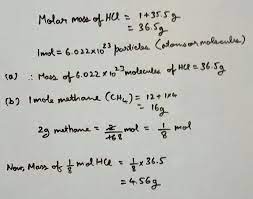 Molar mass of HCl = 1+35.5g
= 36.5g
1mol = 6.022×10²³ particles (atoms or molecules)
(a) ∴ Mass of 6.022×10²³ molecules of HCl = 36.5g
(b) 1 mole methane (CH₄) = 12+1×4
= 16g
2g methane = 2/16 mol = 1/8 mol
Now, Mass of 1/8 mol HCl = 1/8 × 36.5
= 4.56g